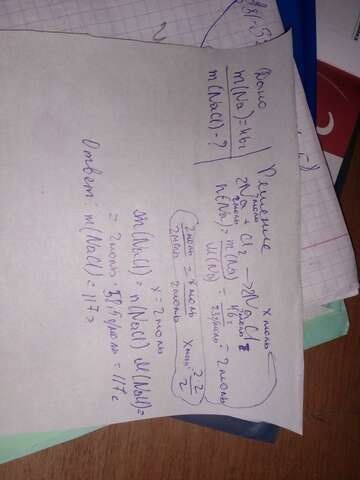 Дано
m(Na)=46г
m(NaCl)-?
Решение
2моль x моль
2Na + Cl2 → 2NaCl
2моль 2моль
n(Na) = m(Na) / M(Na) = 46г / 23г/моль = 2моль
2моль / 2моль = x моль / 2моль
x = 2моль
m(NaCl) = n(NaCl) · M(NaCl) =
= 2моль · 58,5г/моль = 117г
Ответ: m(NaCl) = 117г